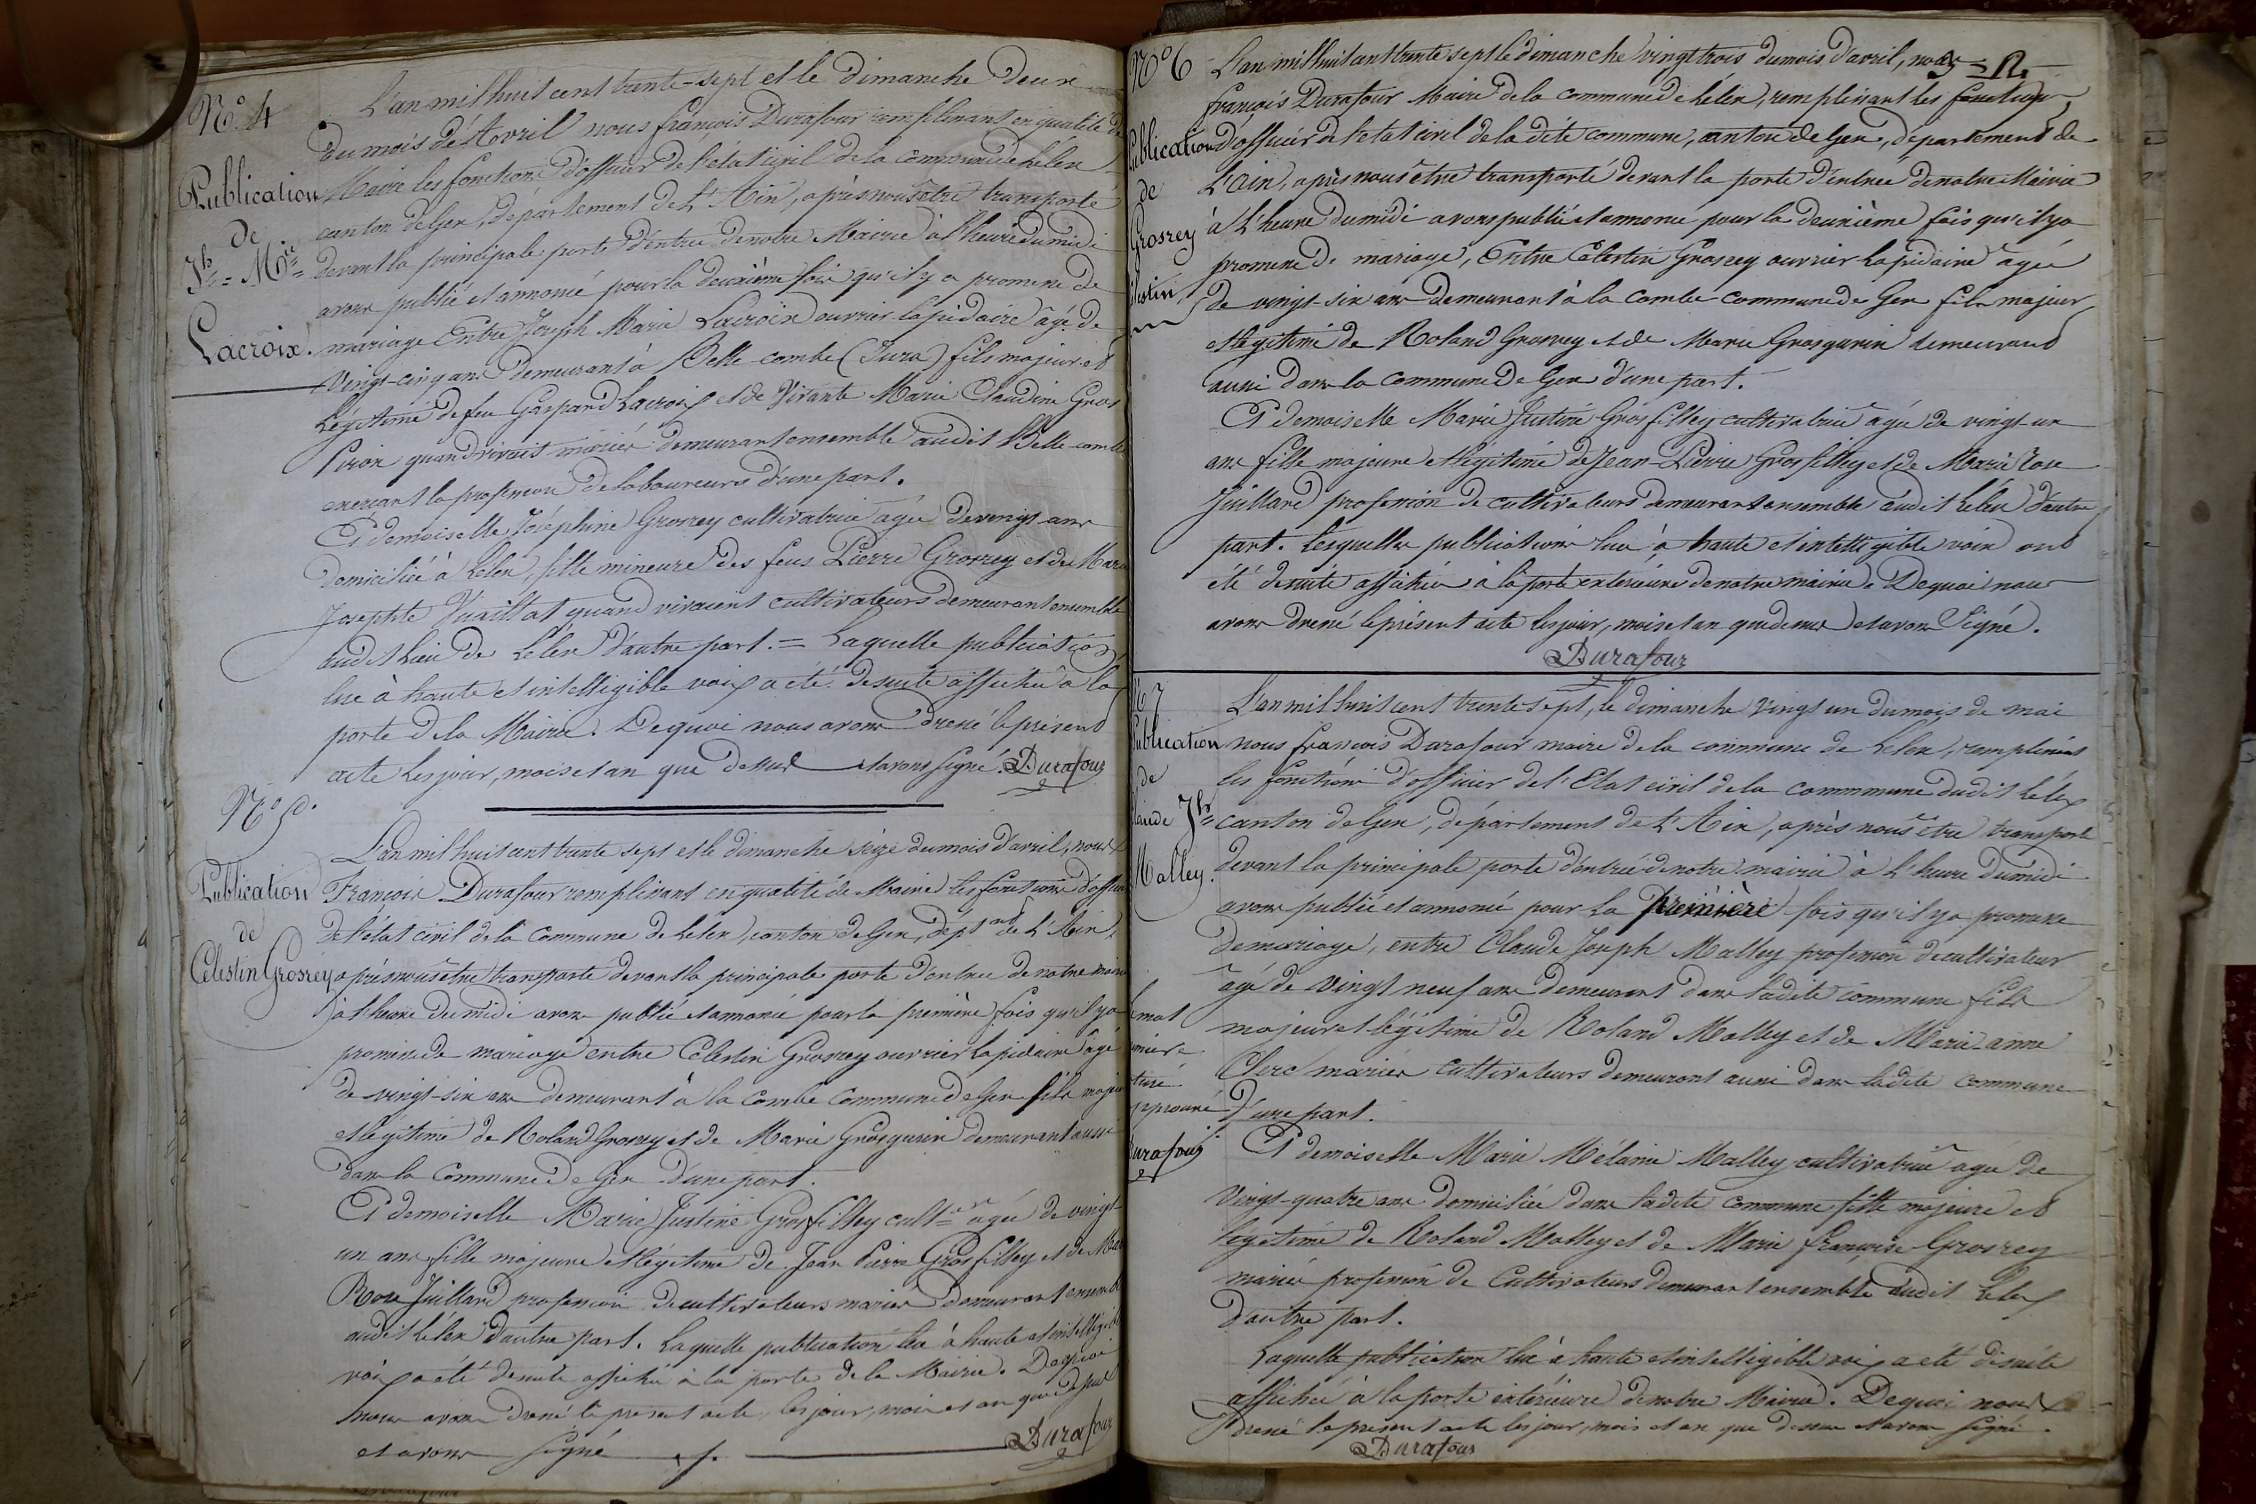 N° 4
Publication
de
Jh = Mie
Lacroix.
L'an mil huit cent trente-sept et le dimanche deux
du mois d'Avril nous françois Durafour remplissant en qualité de
Maire les fonctions d'officier de l'état civil de la commune de Lelex
canton de Gex, département de L'Ain, après nous être transporté
devant la principale porte d'entrée de notre Mairie à l'heure du midi
avons publié et annoncé pour la deuxième fois qu'il y a promesse de
mariage Entre Joseph Marie Lacroix ouvrier lapidaire âgé de
vingt-cinq ans demeurant à Belle-combe (Jura) fils majeur et
Légitime de feu Gaspard Lacroix et de vivante Marie Claudine Gros
Piron quand vivait mariés demeurant ensemble audit Belle-combe
exerçant la profession de laboureurs d'une part.
Et demoiselle Joséphine Grosrey cultivatrice âgée de vingt ans
domiciliée à Lelex, fille mineure des feus Pierre Grosrey et de Marie
Josephte Vuaillat quand vivaient cultivateurs demeurant ensemble
audit lieu de Lelex d'autre part. = Laquelle publication
lue à haute et intelligible voix a été de suite affichée à la
porte de la Mairie. De quoi nous avons dressé le présent
acte les jour, mois et an que dessus et avons signé. Durafour
N° 5.
Publication
de
Célestin Grosrey
L'an mil huit cent trente sept et le dimanche seize du mois d'avril, nous
François Durafour remplissant en qualité de Maire les fonctions d'officier
de l'état civil de la Commune de Lelex, canton de Gex, dépt de L'Ain,
après nous être transporté devant la principale porte d'entrée de notre mairie
à l'heure du midi avons publié et annoncé pour la première fois qu'il y a
promesse de mariage entre Célestin Grosrey ouvrier lapidaire âgé
de vingt-six ans demeurant à la combe Commune de Gex fils majeur
et légitime de Roland Grosrey et de Marie Grosgurin demeurant aussi
dans la Commune de Gex d'une part.
Et demoiselle Marie Justine Grosfilley cult.ce âgée de vingt-
un ans, fille majeure et légitime de Jean Pierre Grosfilley et de Marie
Rose Juillard profession de cultivateurs mariés demeurant ensemble
audit Lelex d'autre part. Laquelle publication lue à haute et intelligible
voix a été de suite affichée à la porte de la Mairie. De quoi
nous avons dressé le présent acte, les jour, mois et an que dessus
et avons signé. Durafour
N° 6
Publication
de
Grosrey
Célestin
L'an mil huit cent trente sept le dimanche vingt trois du mois d'avril, nous
françois Durafour Maire de la commune de Lelex, remplissant les fonctions
d'officier de l'état civil de la dite commune, canton de Gex, département de
L'Ain, après nous être transporté devant la porte d'entrée de notre Mairie
à l'heure du midi avons publié et annoncé pour la deuxième fois qu'il y a
promesse de mariage, Entre Célestin Grosrey ouvrier lapidaire âgé
de vingt-six ans demeurant à la Combe commune de Gex fils majeur
et légitime de Roland Grosrey et de Marie Grosgurin demeurant
aussi dans la commune de Gex d'une part.
Et demoiselle Marie Justine Grosfilley cultivatrice âgée de vingt-un
ans fille majeure et légitime de Jean-Pierre Grosfilley et de Marie Rose
Juillard profession de cultivateurs demeurant ensemble audit Lelex d'autre
part. Lesquelles publications lues à haute et intelligible voix ont
été de suite affichées à la porte extérieure de notre mairie. De quoi nous
avons dressé le présent acte les jour, mois et an que dessus et avons Signé.
Durafour
N° 7
Publication
de
Claude Jh
Malley.
L'an mil huit cent trente sept, le dimanche vingt un du mois de mai
nous françois Durafour maire de la commune de Lelex, remplissant
les fonctions d'officier de l'Etat civil de la commune dudit Lelex
canton de Gex, département de L'Ain, après nous être transporté
devant la principale porte d'entrée de notre mairie à l'heure du midi
avons publié et annoncé pour la Première fois qu'il y a promesse
de mariage, entre Claude Joseph Malley profession de cultivateur
âgé de vingt neuf ans demeurant dans ladite commune fils
majeur et légitime de Roland Malley et de Marie-anne
Clerc mariés cultivateurs demeurant aussi dans ladite commune
D'une part.
Le mot
première
approuvé
Durafour
Et demoiselle Marie Mélanie Malley cultivatrice âgée de
vingt-quatre ans domiciliée dans ladite commune fille majeure et
légitime de Roland Malley et de Marie françoise Grosrey
mariés profession de Cultivateurs demeurant ensemble audit Lelex
d'autre part.
Laquelle publication lue à haute et intelligible voix a été de suite
affichée à la porte extérieure de notre Mairie. De quoi nous
dressé le présent acte les jour, mois et an que dessus et avons signé.
Durafour